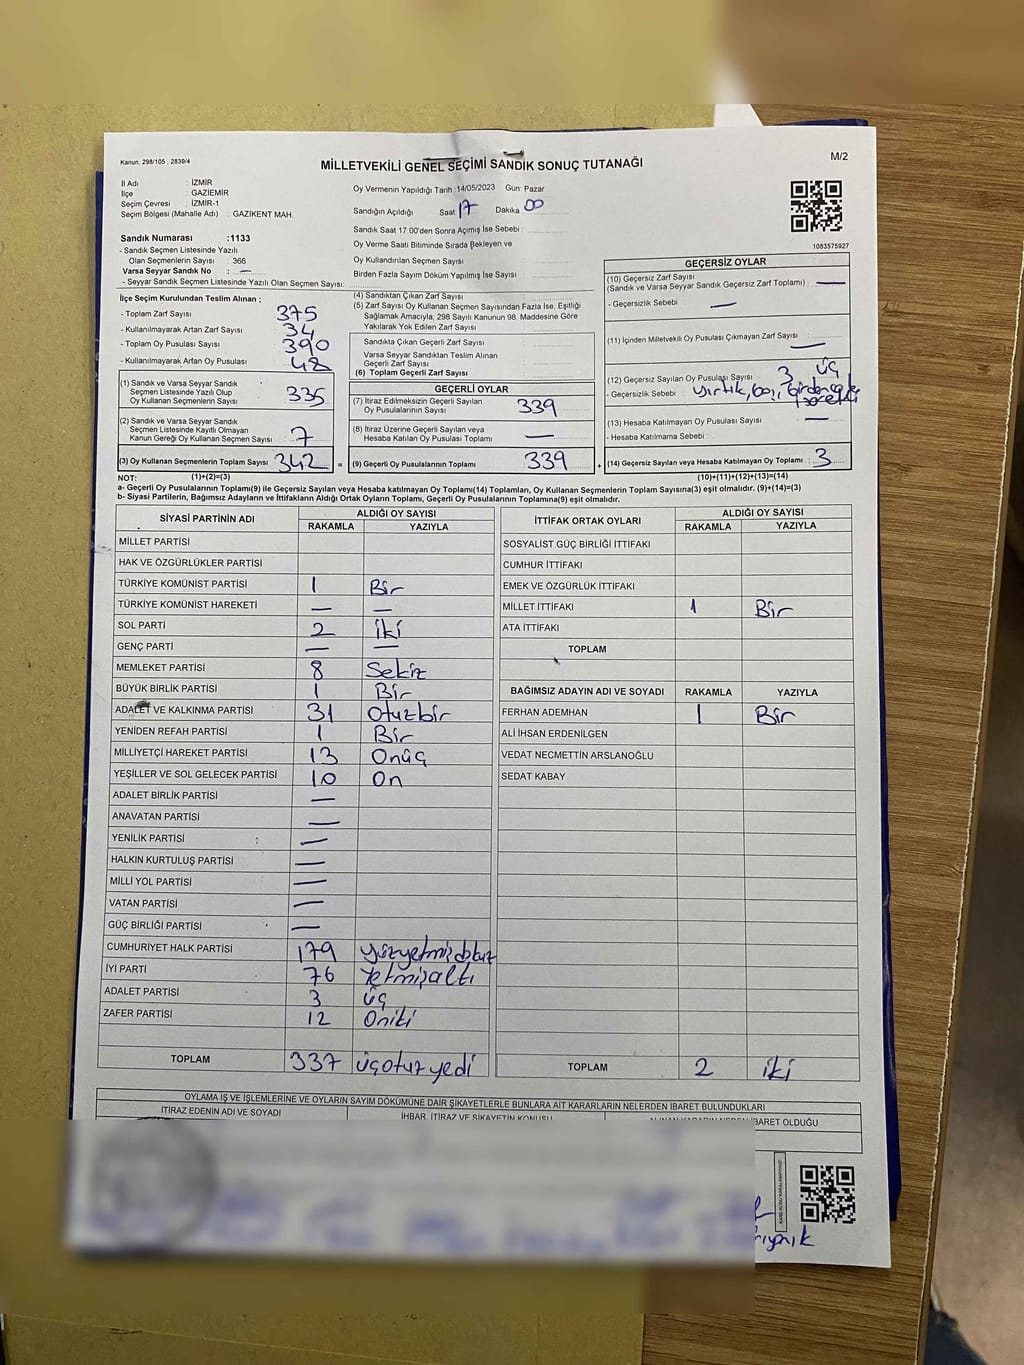 Kanun: 298/105 , 2839/4
MİLLETVEKİLİ GENEL SEÇİMİ SANDIK SONUÇ TUTANAĞI
M/2
İl Adı : İZMİR
İlçe : GAZİEMİR
Seçim Çevresi : İZMİR-1
Seçim Bölgesi (Mahalle Adı) : GAZİKENT MAH.
Oy Vermenin Yapıldığı Tarih :14/05/2023 Gün: Pazar
Sandığın Açıldığı Saat 17 Dakika 00
Sandık Saat 17.00'den Sonra Açımış İse Sebebi :
Oy Verme Saati Bitiminde Sırada Bekleyen ve
Oy Kullandırılan Seçmen Sayısı
Birden Fazla Sayım Döküm Yapılmış İse Sayısı :
1083575927
Sandık Numarası :1133
- Sandık Seçmen Listesinde Yazılı
Olan Seçmenlerin Sayısı : 366
Varsa Seyyar Sandık No : —
- Seyyar Sandık Seçmen Listesinde Yazılı Olan Seçmen Sayısı:
İlçe Seçim Kurulundan Teslim Alınan ;
- Toplam Zarf Sayısı : 375
- Kullanılmayarak Artan Zarf Sayısı : 34
- Toplam Oy Pusulası Sayısı : 390
- Kullanılmayarak Artan Oy Pusulası : 48
(1) Sandık ve Varsa Seyyar Sandık
Seçmen Listesinde Yazılı Olup
Oy Kullanan Seçmenlerin Sayısı : 335
(2) Sandık ve Varsa Seyyar Sandık
Seçmen Listesinde Kayıtlı Olmayan
Kanun Gereği Oy Kullanan Seçmen Sayısı : 7
(3) Oy Kullanan Seçmenlerin Toplam Sayısı : 342 =
(4) Sandıktan Çıkan Zarf Sayısı :
(5) Zarf Sayısı Oy Kullanan Seçmen Sayısından Fazla İse, Eşitliği
Sağlamak Amacıyla, 298 Sayılı Kanunun 98. Maddesine Göre
Yakılarak Yok Edilen Zarf Sayısı :
Sandıkta Çıkan Geçerli Zarf Sayısı
Varsa Seyyar Sandıktan Teslim Alınan
Geçerli Zarf Sayısı
(6) Toplam Geçerli Zarf Sayısı
GEÇERLİ OYLAR
(7) İtiraz Edilmeksizin Geçerli Sayılan
Oy Pusulalarının Sayısı : 339
(8) İtiraz Üzerine Geçerli Sayılan veya
Hesaba Katılan Oy Pusulası Toplamı : —
(9) Geçerli Oy Pusulalarının Toplamı : 339 +
GEÇERSİZ OYLAR
(10) Geçersiz Zarf Sayısı
(Sandık ve Varsa Seyyar Sandık Geçersiz Zarf Toplamı) : —
- Geçersizlik Sebebi : —
(11) İçinden Milletvekili Oy Pusulası Çıkmayan Zarf Sayısı : —
(12) Geçersiz Sayılan Oy Pusulası Sayısı : 3 üç
- Geçersizlik Sebebi : yırtık, boş,
(13) Hesaba Katılmayan Oy Pusulası Sayısı : —
- Hesaba Katılmama Sebebi :
(14) Geçersiz Sayılan veya Hesaba Katılmayan Oy Toplamı : 3
NOT: (1)+(2)=(3) (10)+(11)+(12)+(13)=(14)
a- Geçerli Oy Pusulalarının Toplamı(9) ile Geçersiz Sayılan veya Hesaba Katılmayan Oy Toplamı(14) Toplamları, Oy Kullanan Seçmenlerin Toplam Sayısına(3) eşit olmalıdır. (9)+(14)=(3)
b- Siyasi Partilerin, Bağımsız Adayların ve İttifakların Aldığı Ortak Oyların Toplamı, Geçerli Oy Pusulalarının Toplamına(9) eşit olmalıdır.
SİYASİ PARTİNİN ADI ALDIĞI OY SAYISI
RAKAMLA YAZIYLA
MİLLET PARTİSİ
HAK VE ÖZGÜRLÜKLER PARTİSİ
TÜRKİYE KOMÜNİST PARTİSİ 1 Bir
TÜRKİYE KOMÜNİST HAREKETİ — —
SOL PARTİ 2 iki
GENÇ PARTİ — —
MEMLEKET PARTİSİ 8 Sekiz
BÜYÜK BİRLİK PARTİSİ 1 Bir
ADALET VE KALKINMA PARTİSİ 31 Otuzbir
YENİDEN REFAH PARTİSİ 1 Bir
MİLLİYETÇİ HAREKET PARTİSİ 13 Onüç
YEŞİLLER VE SOL GELECEK PARTİSİ 10 On
ADALET BİRLİK PARTİSİ —
ANAVATAN PARTİSİ —
YENİLİK PARTİSİ —
HALKIN KURTULUŞ PARTİSİ —
MİLLİ YOL PARTİSİ —
VATAN PARTİSİ —
GÜÇ BİRLİĞİ PARTİSİ —
CUMHURİYET HALK PARTİSİ 179 yüzyetmişdokuz
İYİ PARTİ 76 Yetmişaltı
ADALET PARTİSİ 3 üç
ZAFER PARTİSİ 12 Oniki
TOPLAM 337 üçotuzyedi
İTTİFAK ORTAK OYLARI ALDIĞI OY SAYISI
RAKAMLA YAZIYLA
SOSYALİST GÜÇ BİRLİĞİ İTTİFAKI
CUMHUR İTTİFAKI
EMEK VE ÖZGÜRLÜK İTTİFAKI
MİLLET İTTİFAKI 1 Bir
ATA İTTİFAKI
TOPLAM
BAĞIMSIZ ADAYIN ADI VE SOYADI RAKAMLA YAZIYLA
FERHAN ADEMHAN 1 Bir
ALİ İHSAN ERDENİLGEN
VEDAT NECMETTİN ARSLANOĞLU
SEDAT KABAY
TOPLAM 2 iki
OYLAMA İŞ VE İŞLEMLERİNE VE OYLARIN SAYIM DÖKÜMÜNE DAİR ŞİKAYETLERLE BUNLARA AİT KARARLARIN NELERDEN İBARET BULUNDUKLARI
İTİRAZ EDENİN ADI VE SOYADI İHBAR, İTİRAZ VE ŞİKAYETİN KONUSU ALINAN KARARIN NEDEN İBARET OLDUĞU
KARE KODU KARALAMAYINIZ